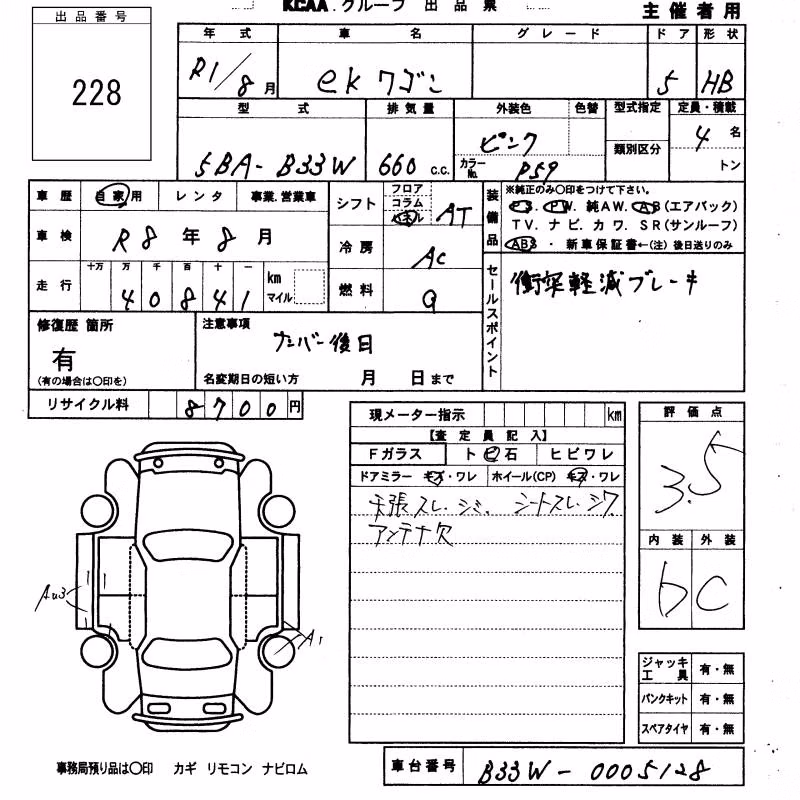 KCAA.グループ 出品票
主催者用
出品番号
228
年式 車名 グレード ドア 形状
R1/8月 ekワゴン 5 HB
型式 排気量 外装色 色替 型式指定 定員・積載
5BA-B33W 660 c.c. ピンク 類別区分 4名
カラーNo. P59 トン
車歴 自家用 レンタ 事業.営業車
車検 R8年8月
走行 十万 万 千 百 十 一
40841 km マイル
シフト フロア コラム パネル AT
冷房 AC
燃料 G
装備品 ※純正のみ○印をつけて下さい。
P.S. P.W. 純AW. AB(エアバック)
TV. ナビ. カワ. SR(サンルーフ)
ABS ・ 新車保証書←(注) 後日送りのみ
セールスポイント 衝突軽減ブレーキ
修復歴 箇所
有
(有の場合は○印を)
注意事項
ナンバー後日
名変期日の短い方 月 日まで
リサイクル料 8700円
現メーター指示 km
【査定員記入】
Fガラス トビ石 ヒビワレ
ドアミラー キズ・ワレ ホイール(CP) キズ・ワレ
天張スレ.シミ. シートスレ.シワ.
アンテナ欠
評価点
3.5
内装 外装
b C
AU3
A1
ジャッキ工具 有・無
パンクキット 有・無
スペアタイヤ 有・無
事務局預り品は○印 カギ リモコン ナビロム
車台番号 B33W-0005128